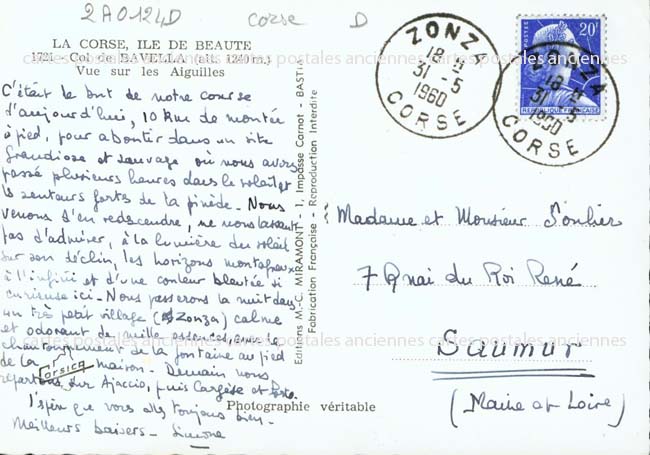 2A0124D Corse D
LA CORSE, ILE DE BEAUTE
1721 - Col de BAVELLA (alt. 1240 m.)
Vue sur les Aiguilles
C'était le but de notre course
d'aujourd'hui, 10 km de montée
à pied, pour aboutir dans un site
grandiose et sauvage où nous avons
passé plusieurs heures dans le soleil et
les senteurs fortes de la pinède. Nous
venons d'en redescendre, ne nous lassant
pas d'admirer, à la lumière du soleil
sur son déclin, les horizons montagneux
à l'infini et d'une couleur bleutée si
curieuse ici. Nous passerons la nuit dans
un très petit village (Zonza) calme
et odorant de mille essences, avec le
chantonnement de la fontaine au pied
de la maison. Demain nous
Corsica
repartons sur Ajaccio, puis Cargèse et Porto.
J'espère que vous allez toujours bien.
Meilleurs baisers - Simone
Photographie véritable
Editions M.-C. MIRAMONT - 1, Impasse Carnot - BASTIA
Fabrication Française - Reproduction Interdite
ZONZA
18 H
31-5
1960
CORSE
20F
REPUBLIQUE FRANÇAISE
ZONZA
18 H
31-5
1960
CORSE
Madame et Monsieur
7 Quai du Roi René
Saumur
(Maine et Loire)
cartes postales anciennes cartes postales anciennes
cartes postales anciennes cartes postales anciennes